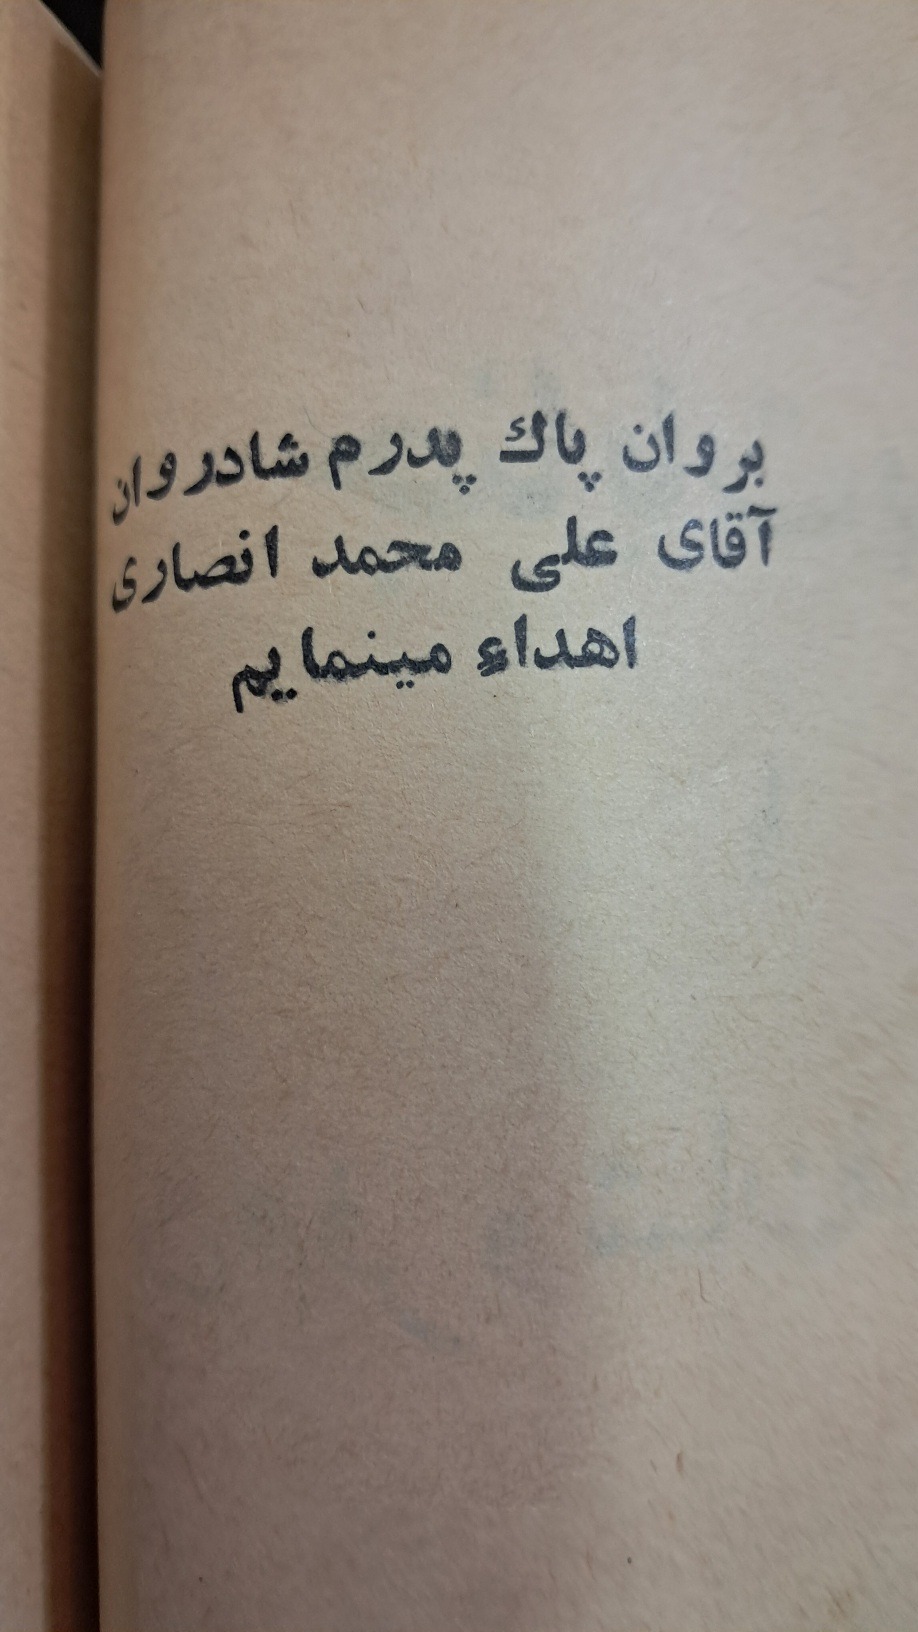 بروان پاك پدرم شادروان
آقای علی محمد انصاری
اهداء مینمایم